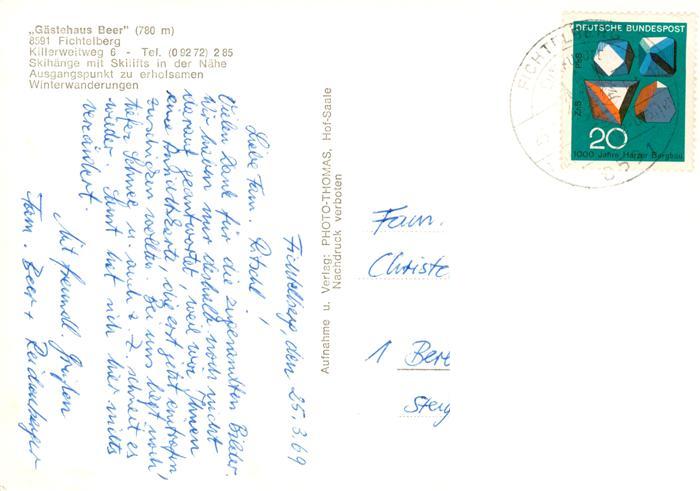 „Gästehaus Beer" (780 m)
8591 Fichtelberg
Killerweitweg 6 - Tel. (0 92 72) 2 85
Skihänge mit Skilifts in der Nähe
Ausgangspunkt zu erholsamen
Winterwanderungen
Fichtelberg, den 25.3.69
Liebe Fam.
Vielen Dank für die zugesandten Bilder.
Wir haben nur deshalb noch nicht
darauf geantwortet, weil wir Ihnen
eine Ansichtskarte, die erst jetzt eintrafen,
zuschicken wollten. Bei uns liegt noch
tiefer Schnee u. auch z. Z. schneit es
wieder. Sonst hat sich hier nichts
verändert.
Mit freundl. Grüßen
Fam. Beer +
Aufnahme u. Verlag: PHOTO-THOMAS, Hof-Saale
Nachdruck verboten
DEUTSCHE BUNDESPOST
PbS
ZnS
20
1000 Jahre Harzer Bergbau
FICHTELBERG
8591
Fam.
Christo
1 Ber
Steg